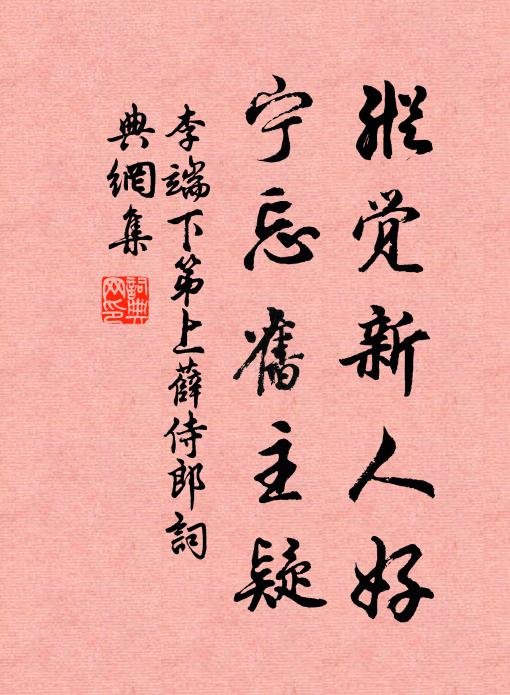 纵觉新人好
宁忘舊主疑
李端下第上薛侍郎詞
典網集
詞典网印